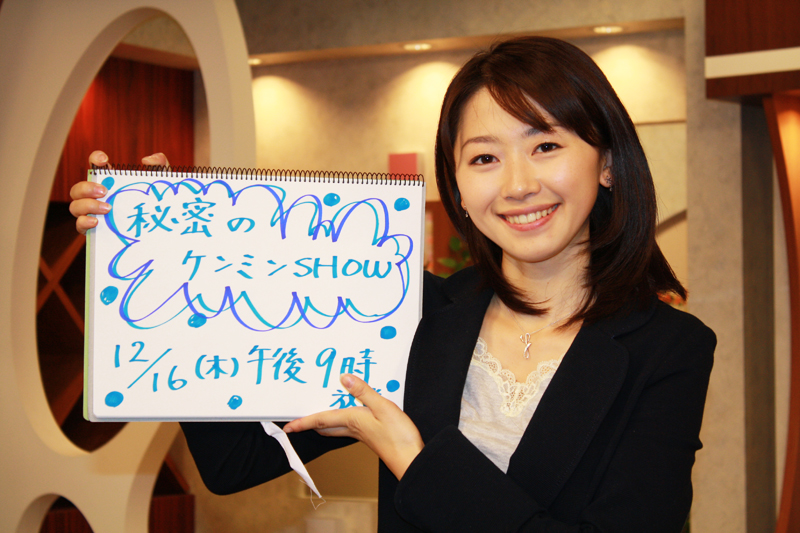 秘密の
ケンミンSHOW
12/16(木)午後9時